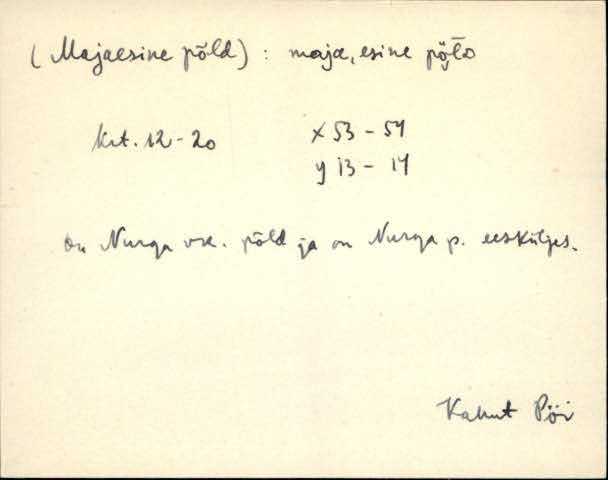 (Majaesine põld) : maja, esine põ̭l̄D
krt. 12-20 x 53 - 54
y 13 - 14
on Nurga vse. põld ja on Nurga p. eesküljes.
Kalmt Pöi